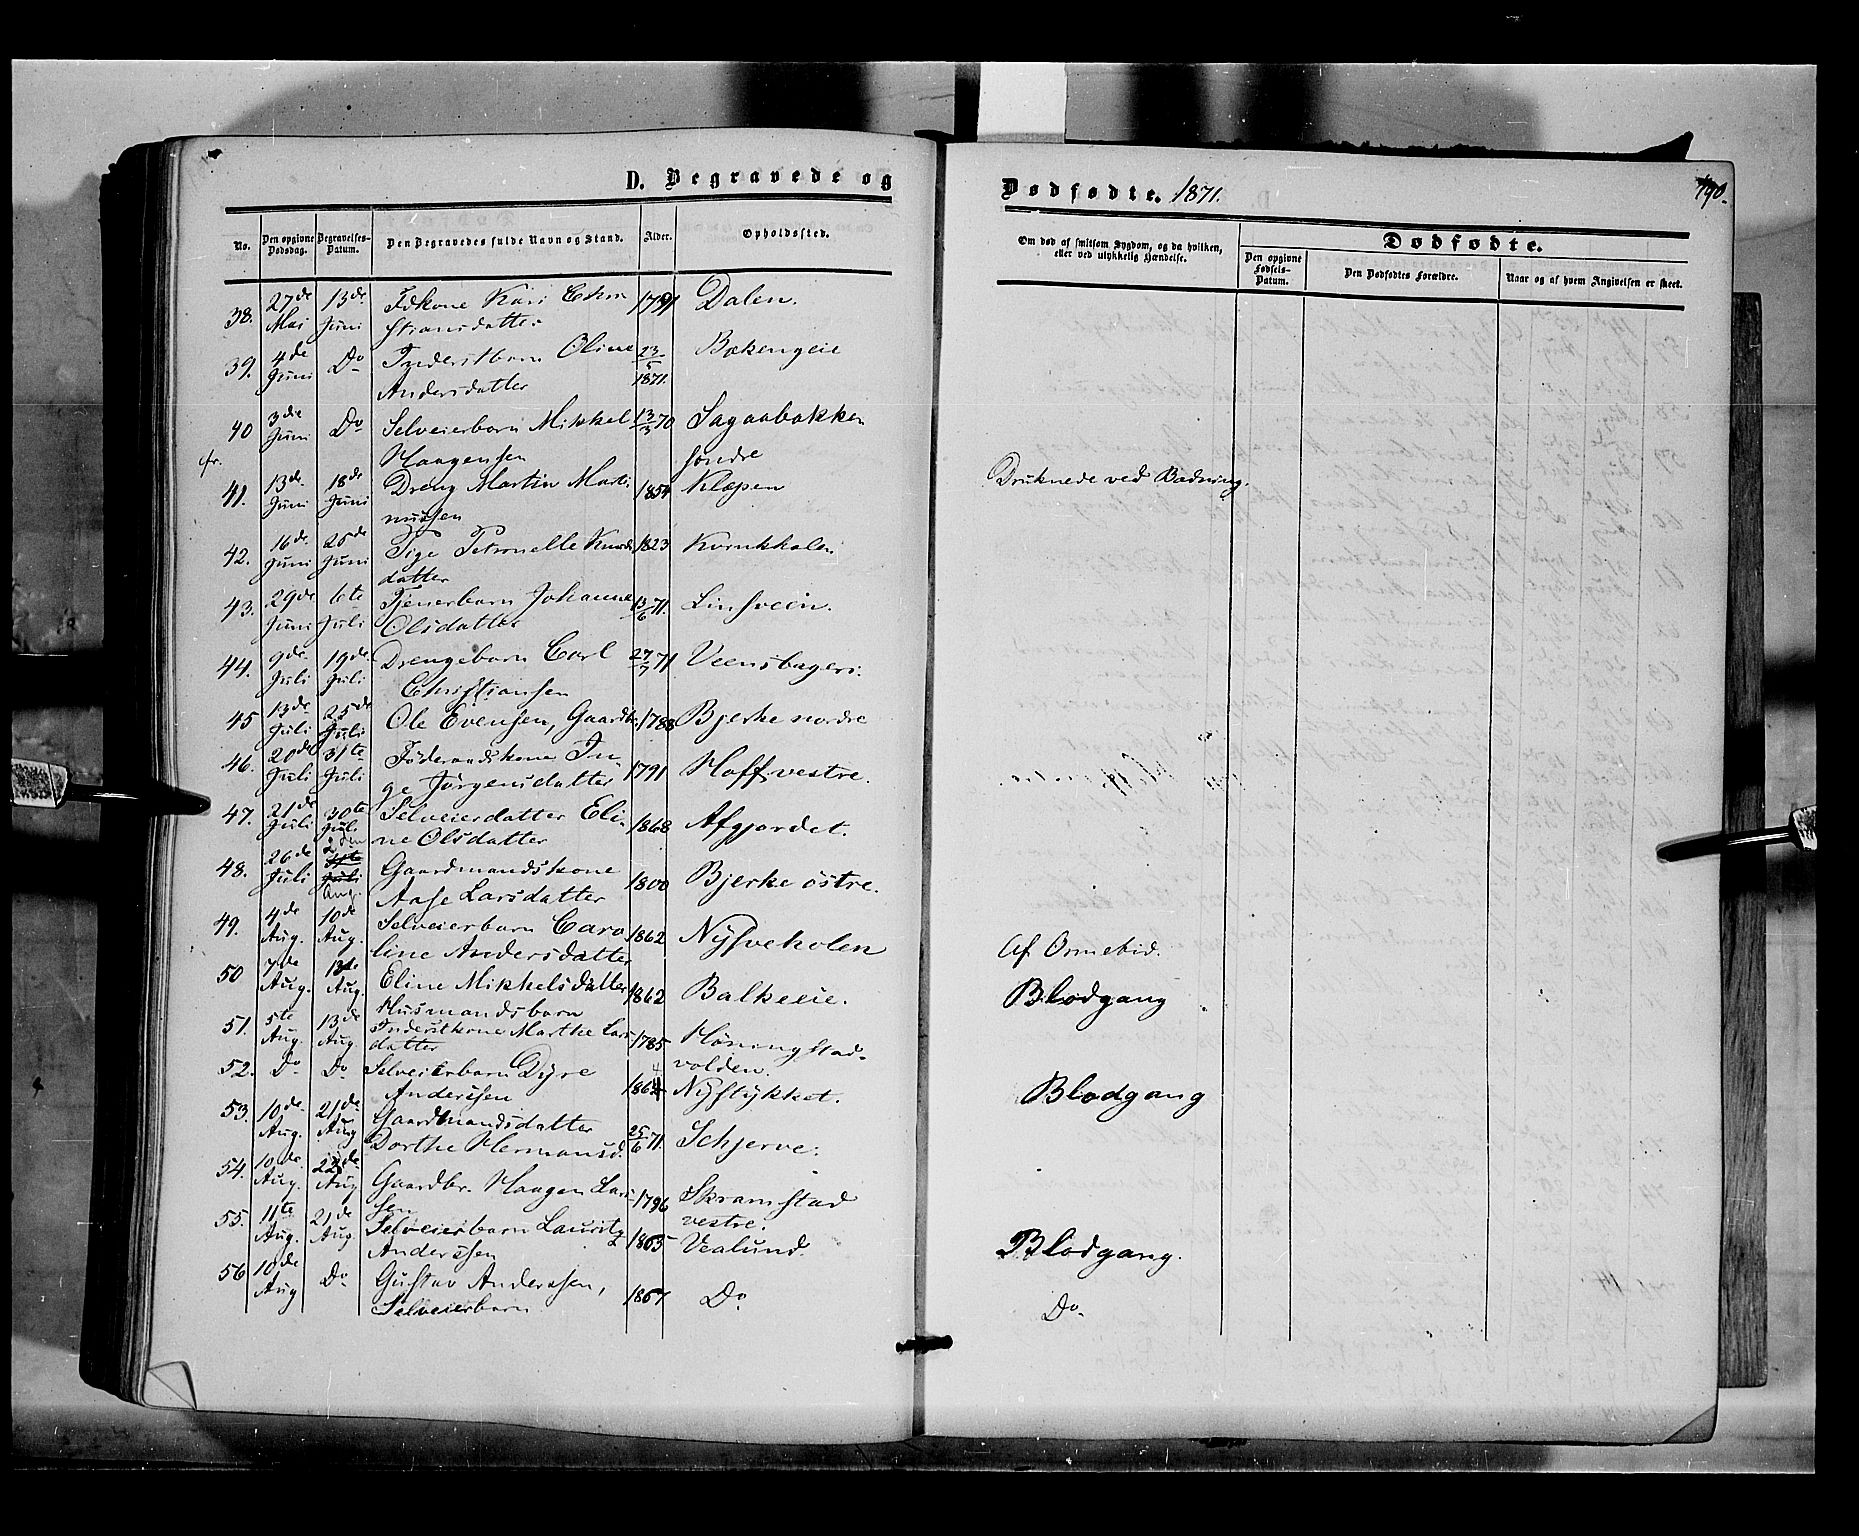 D. Begravede og
Dødfødte. 1871.
190.
No.
Den opgivne Dødsdag.
Begravelses-Datum.
Den Begravedes fulde Navn og Stand.
Alder.
Opholdssted.
Om død af smitsom Sygdom, og da hvilken, eller ved ulykkelig Hændelse.
Dødfødte.
Den opgivne Fødsels-Datum.
Den Dødfødtes Forældre.
Naar og af hvem Angivelsen er skeet.
38. 27de Mai 13de Juni Fdkone Kari Chri 1791 Dalen.
stiansdatter
39. 4de Juni Do Inderstbarn Oline 23/5 1871. Bækengeie
Andersdatter
40 3die Juni Do Selveierbarn Mikkel 13/3 70 Sagaabakken
Haagensen søndre
fr.
41. 13de Juni 18de Juni Dreng Martin Marti 1854 Klæpen Druknede ved Badning.
nussen
42. 16de Juni 25de Juni Pige Petronelle Knuds 1823
datter
43. 29de Juni 6te Juli Tjenerbarn Johanne 13/6 71. Linsveen.
Olsdatter
44. 9de Juli 19de Juli Drengebarn Carl 27/7 71
Christiansen
45 13de Juli 25de Juli Ole Evensen, Gaardbr. 1788 Bjerke nordre
46. 20de Juli 31te Juli Føderaadskone In 1791 Hoff vestre.
ge Jørgensdatter
47. 21de Juli 30te Juli Selveierdatter Eli- 1868 Afgjordet.
ne Olsdatter
48. 26de Juli 2den Aug. Gaardmandskone 1800 Bjerke østre.
Aase Larsdatter
49. 4de Aug. 10de Aug. Selveierbarn Caro 1862 Nysveholen Af Ormebid.
line Andersdatter
50 7de Aug. 13de Aug. Eline Mikkelsdatter 1862 Balkeeie. Blodgang
Husmandsbarn
51. 5te Aug. 13de Aug. Inderstkone Marthe Lars 1785 Høningstad-
datter volden.
52. Do Do Selveierbarn Dyre 1864 Nystykket. Blodgang
Anderssen
53. 10de Aug. 21de Aug Gaardmandsdatter 25/6 71. Schjerve.
Dorthe Hermansd.
54. 10de Aug. 22de Aug Gaardbr. Haagen Lars 1796 Skramstad
sen vestre.
55. 11te Aug. 21de Aug. Selveierbarn Lauritz 1865 Vealund. Blodgang.
Anderssen
56 10de Aug Do Gustav Anderssen, 1867 Do Do
Selveierbarn